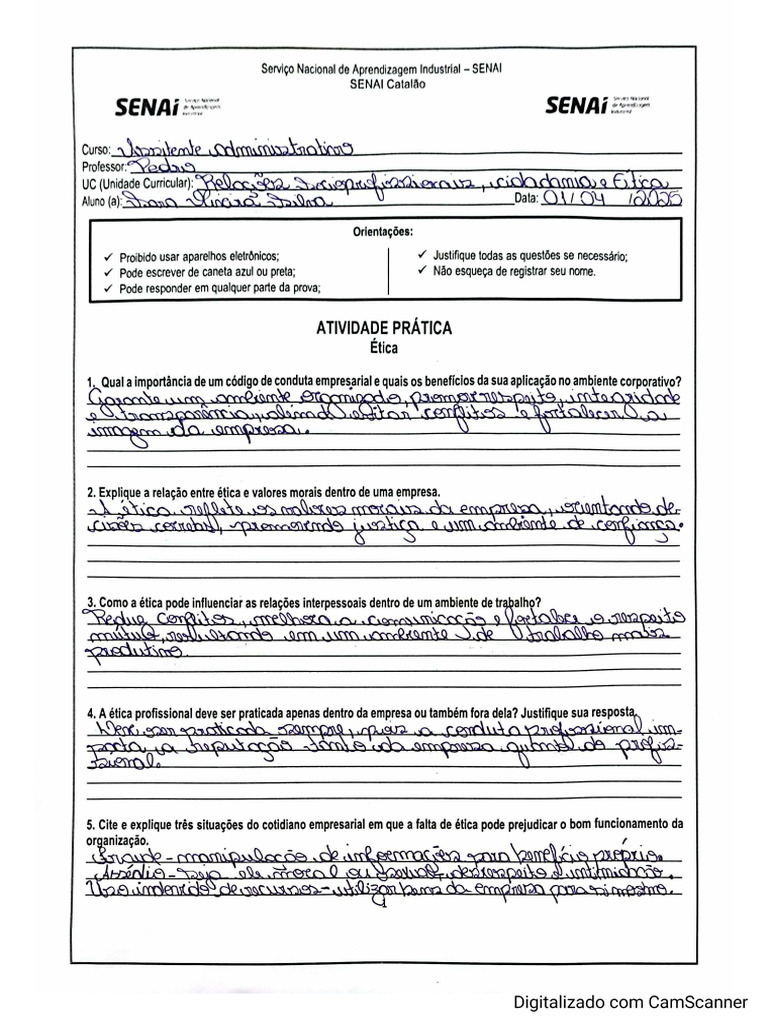 Serviço Nacional de Aprendizagem Industrial – SENAI
SENAI Catalão
SENAI Serviço Nacional de Aprendizagem Industrial
SENAI Serviço Nacional de Aprendizagem Industrial
Curso: Assistente administrativo
Professor: Pedro
UC (Unidade Curricular): Relações Socioprofissionais, cidadania e Ética
Aluno (a): Silva Data: 01/04/2025
Orientações:
✓ Proibido usar aparelhos eletrônicos;
✓ Pode escrever de caneta azul ou preta;
✓ Pode responder em qualquer parte da prova;
✓ Justifique todas as questões se necessário;
✓ Não esqueça de registrar seu nome.
ATIVIDADE PRÁTICA
Ética
1. Qual a importância de um código de conduta empresarial e quais os benefícios da sua aplicação no ambiente corporativo?
Garante um ambiente organizado, promove respeito, integridade
e transparência, além de evitar conflitos e fortalecer a
imagem da empresa.
2. Explique a relação entre ética e valores morais dentro de uma empresa.
A ética reflete os valores morais da empresa, orientando de-
cisões corretas, promovendo justiça e um ambiente de confiança.
3. Como a ética pode influenciar as relações interpessoais dentro de um ambiente de trabalho?
Reduz conflitos, melhora a comunicação e fortalece o respeito
mútuo, resultando em um ambiente de trabalho mais
produtivo.
4. A ética profissional deve ser praticada apenas dentro da empresa ou também fora dela? Justifique sua resposta.
Deve ser praticada sempre, pois a conduta profissional im-
pacta a reputação tanto da empresa quanto do profis-
sional.
5. Cite e explique três situações do cotidiano empresarial em que a falta de ética pode prejudicar o bom funcionamento da
organização.
Fraude - manipulação de informações para benefício próprio.
Assédio - seja ele moral ou sexual, desrespeito e intimidação.
Uso indevido de recursos - utilizar bens da empresa para si mesmo.
Digitalizado com CamScanner